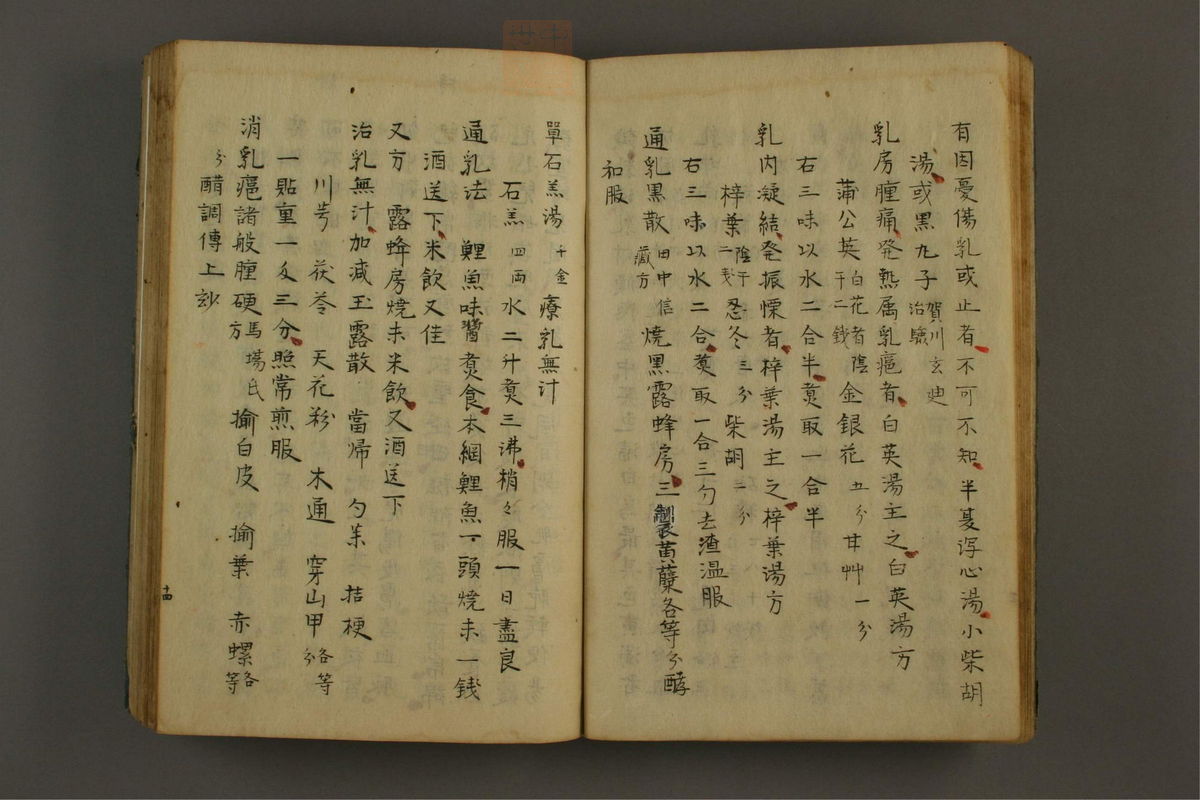 有因憂傷乳或止者不可不知半夏泻心湯小柴胡
湯或黒丸子賀川玄迪治驗
乳房腫痛発熱属乳癰者白英湯主之白英湯方
蒲公英白花者陰干二錢金銀花五分甘艸一分
右三味以水二合半煑取一合半
乳内凝結発振慄者梓葉湯主之梓葉湯方
梓葉陰干二戔忍冬三分柴胡一分
右三味以水二合煑取一合三勺去渣温服
通乳黒散田中信藏方焼黒露蜂房三製黄蘗各等分酵
和服
單石羔湯千金療乳無汁
石羔四両水二升煑三沸梢々服一日盡良
通乳法鯉魚味醬煑食本綱鯉魚一頭焼末一錢
酒送下米飲又佳
又方露蜂房焼末米飲又酒送下
治乳無汁加减玉露散當歸勺薬桔梗
川芎茯苓天花粉木通穿山甲各等分
一貼重一攵三分照常煎服
消乳癰諸般腫硬方馬塲氏揄白皮揄葉赤螺各等
分醋調傳上妙
十四